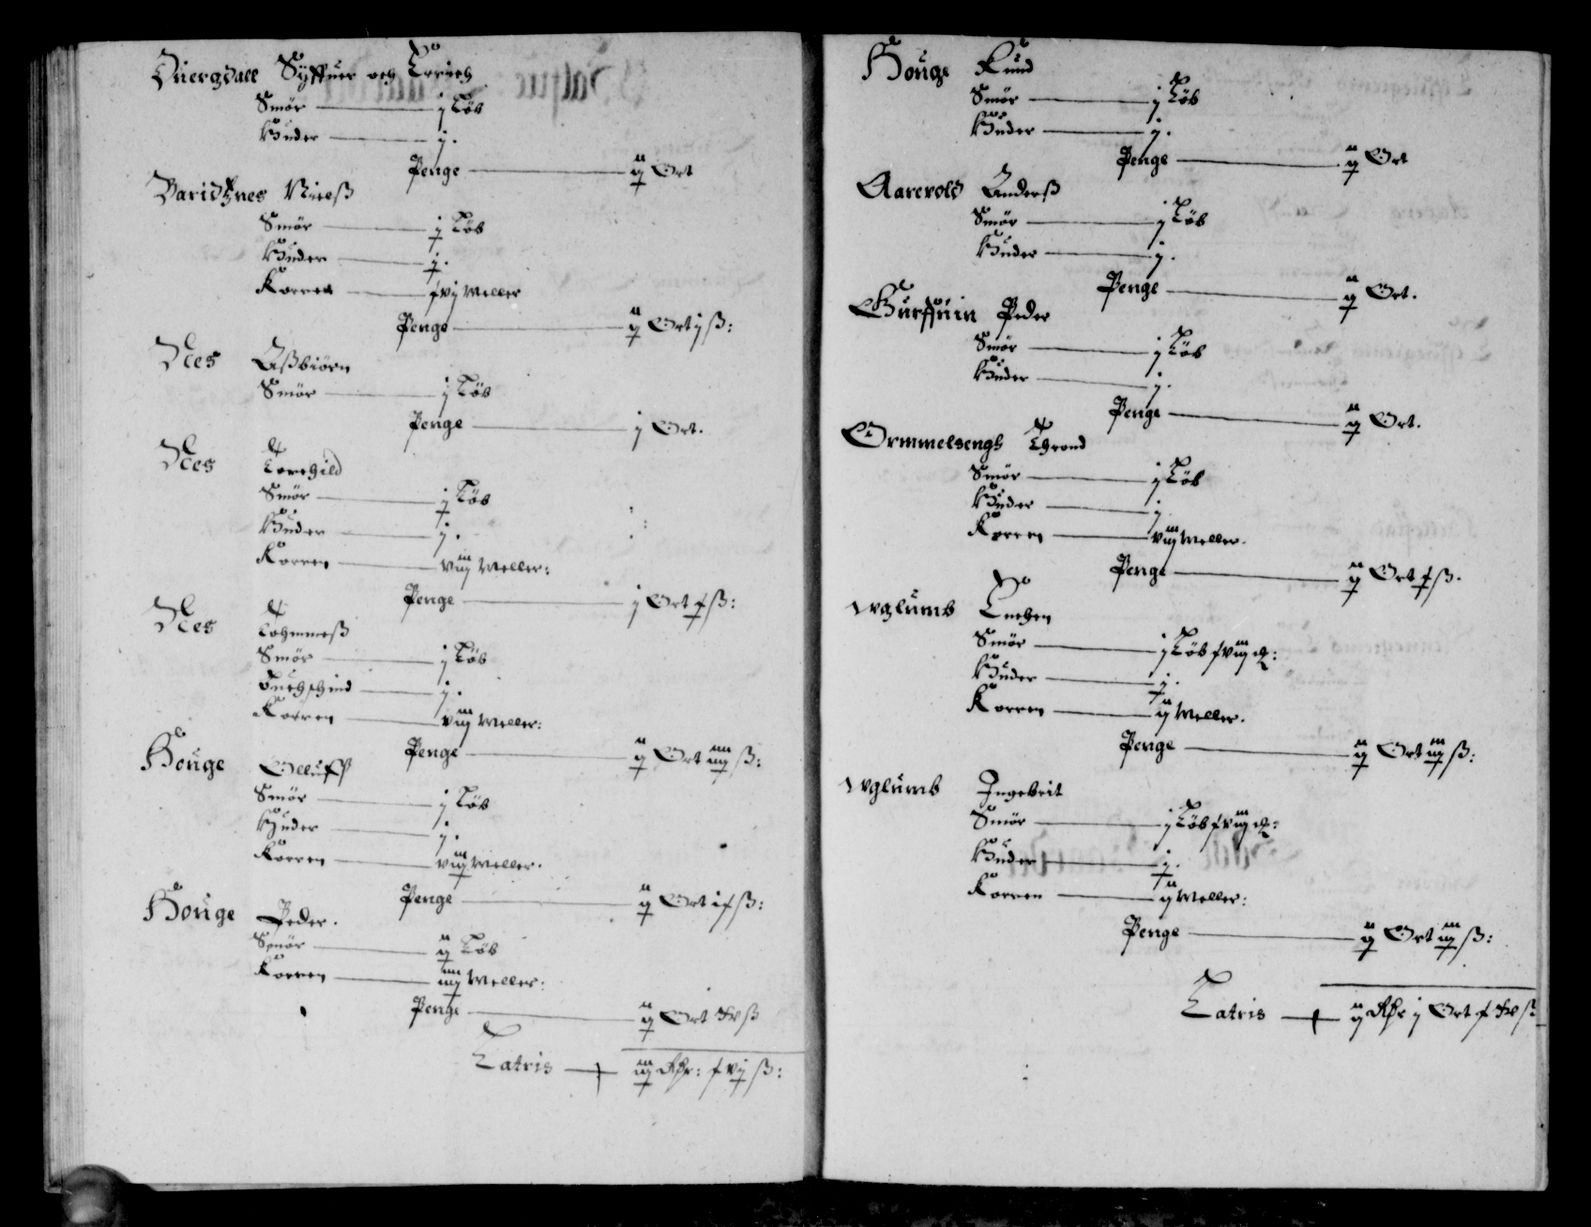 Quergdall Syffuer och Torrich
Smør — j Løb
Huder — j.
Penge — ij Ort
Baridtznes Nielß
Smør — j Løb
Huder — j.
Korren — Meller
Penge — ij Ort j ß:
Nes Aßbiørn
Smør — j Løb
Penge — j Ort.
Nes Torchild
Smør — j Løb
Huder — j.
Korren — viij Meller:
Penge — j Ort ß:
Nes Tohmmeß
Smør — j Løb
Buchschind — j.
Korren — viij Meller:
Penge — ij Ort iiij ß:
Houge Olluff
Smør — j Løb
Huder — j.
Korren — viij Meller.
Penge — ij Ort ß:
Houge Peder.
Smør — ij Løb
Korren — iiij Meller:
Penge — ij Ort xv ß
Latris — iij ß:
Houge Knud
Smør — j Løb
Huder — j.
Penge — ij Ort
Aarevold Anderß
Smør — j Løb
Huder — j.
Penge — ij Ort.
Peder
Smør — j Løb
Huder — j.
Penge — ij Ort.
Ormmelsengh Throend
Smør — j Løb
Huder — j
Korren — viij Meller.
Penge — ij Ort ß.
Uglumb
Smør — j Løb
Huder — j.
Korren — ij Meller.
Penge — ij Ort iij ß:
Uglumb Ingebrit
Smør — j Løb
Huder — j.
Korren — ij Meller:
Penge — ij Ort iij ß:
Latris — ij j Ort ß